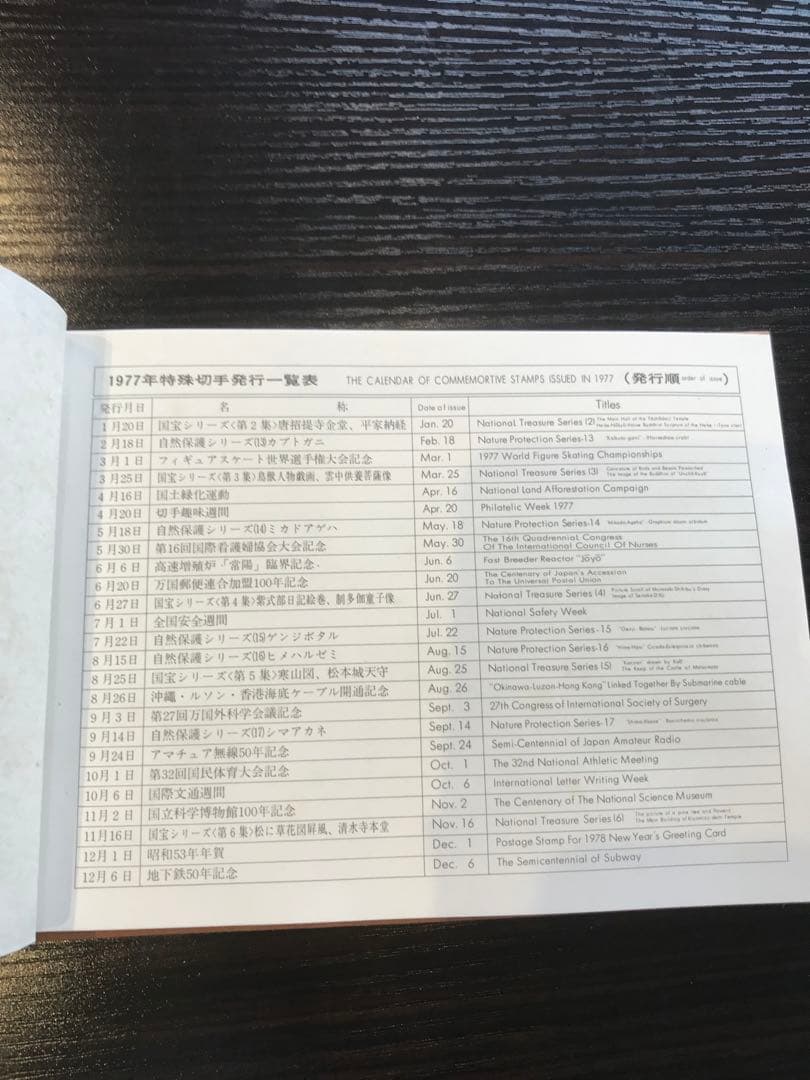 1977年特殊切手発行一覧表 THE CALENDAR OF COMMEMORTIVE STAMPS ISSUED IN 1977 (発行順 order of issue)
発行月日 名 称 Date of issue Titles
1月20日 国宝シリーズ〈第2集〉唐招提寺金堂、平家納経 Jan. 20 National Treasure Series (2)
2月18日 自然保護シリーズ(13)カブトガニ Feb. 18 Nature Protection Series-13
3月1日 フィギュアスケート世界選手権大会記念 Mar. 1 1977 World Figure Skating Championships
3月25日 国宝シリーズ〈第3集〉鳥獣人物戯画、雲中供養菩薩像 Mar. 25 National Treasure Series (3)
4月16日 国土緑化運動 Apr. 16 National Land Afforestation Campaign
4月20日 切手趣味週間 Apr. 20 Philatelic Week 1977
5月18日 自然保護シリーズ(14)ミカドアゲハ May. 18 Nature Protection Series-14
5月30日 第16回国際看護婦協会大会記念 May. 30 The 16th Quadrennial Congress Of The International Council Of Nurses
6月6日 高速増殖炉「常陽」臨界記念 Jun. 6 Fast Breeder Reactor "Jōyō"
6月20日 万国郵便連合加盟100年記念 Jun. 20 The Centenary of Japan's Accession To The Universal Postal Union
6月27日 国宝シリーズ〈第4集〉紫式部日記絵巻、制多伽童子像 Jun. 27 National Treasure Series (4)
7月1日 全国安全週間 Jul. 1 National Safety Week
7月22日 自然保護シリーズ(15)ゲンジボタル Jul. 22 Nature Protection Series-15
8月15日 自然保護シリーズ(16)ヒメハルゼミ Aug. 15 Nature Protection Series-16
8月25日 国宝シリーズ〈第5集〉寒山図、松本城天守 Aug. 25 National Treasure Series (5)
8月26日 沖縄・ルソン・香港海底ケーブル開通記念 Aug. 26 "Okinawa-Luzon-Hong Kong" Linked Together By Submarine cable
9月3日 第27回万国外科学会議記念 Sept. 3 27th Congress of International Society of Surgery
9月14日 自然保護シリーズ(17)シマアカネ Sept. 14 Nature Protection Series-17
9月24日 アマチュア無線50年記念 Sept. 24 Semi-Centennial of Japan Amateur Radio
10月1日 第32回国民体育大会記念 Oct. 1 The 32nd National Athletic Meeting
10月6日 国際文通週間 Oct. 6 International Letter Writing Week
11月2日 国立科学博物館100年記念 Nov. 2 The Centenary of The National Science Museum
11月16日 国宝シリーズ〈第6集〉松に草花図屏風、清水寺本堂 Nov. 16 National Treasure Series (6)
12月1日 昭和53年年賀 Dec. 1 Postage Stamp For 1978 New Year's Greeting Card
12月6日 地下鉄50年記念 Dec. 6 The Semicentennial of Subway